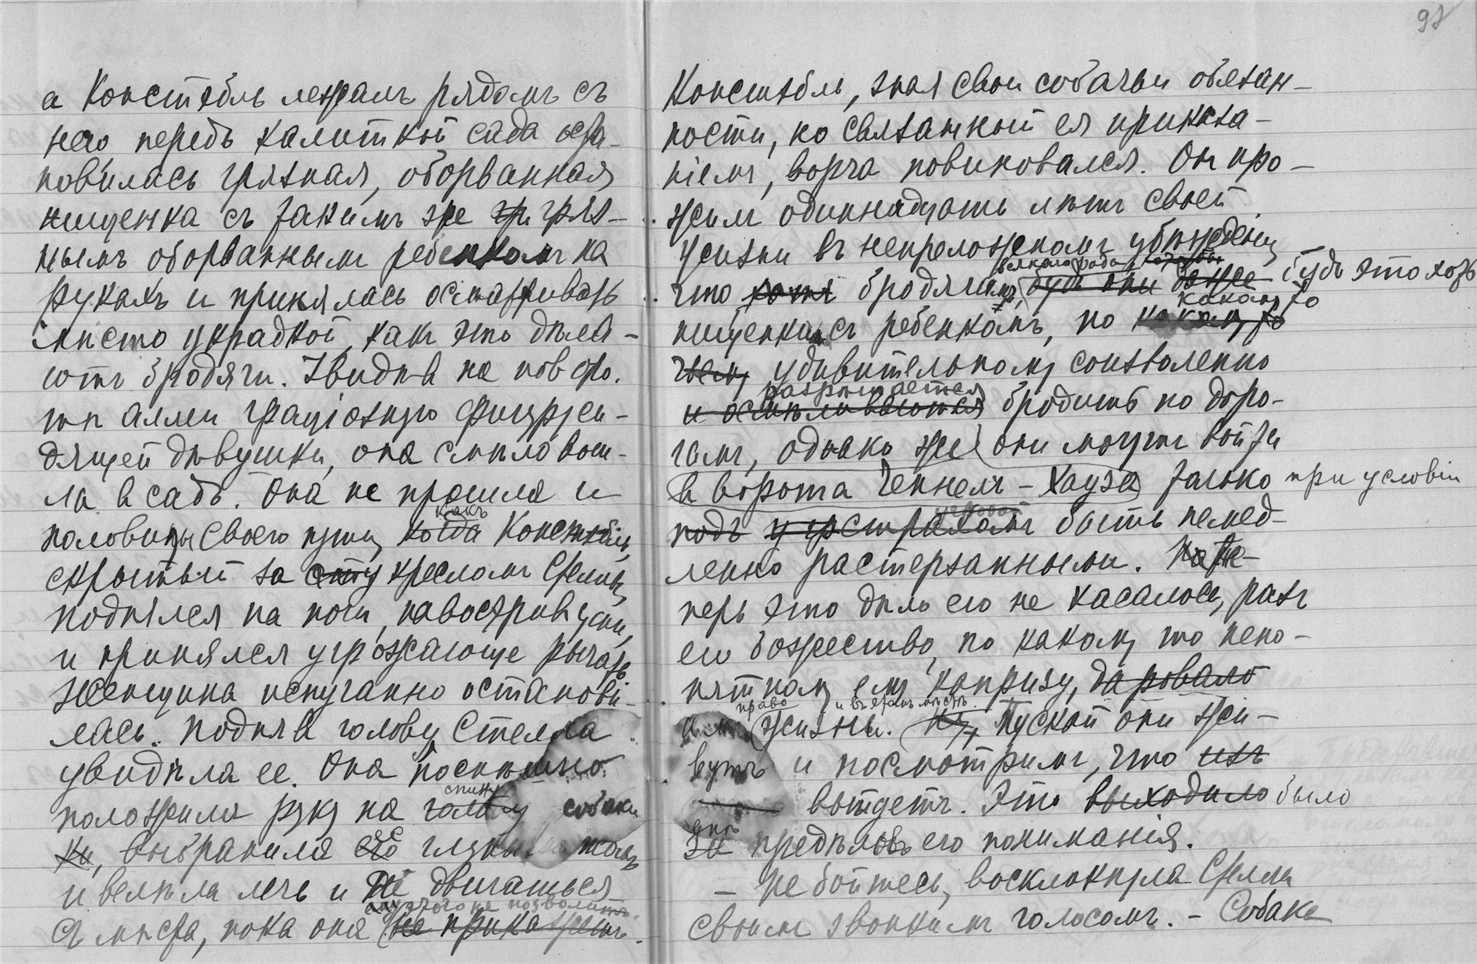 97
а Констэбль лежалъ рядомъ съ
нею передъ калиткой сада оста-
новилась грязная, оборванная
нищенка съ такимъ же гр гряз-
нымъ оборваннымъ ребенкомъ на
рукахъ и принялась осматривать
мѣсто украдкой, какъ это дѣла-
ютъ бродяги. Увидѣвъ на поворо-
тѣ аллеи граціозную фигуру си-
дящей дѣвушки, она смѣло вош-
ла въ садъ. Она не прошла и
какъ
половины своего пути, когда Констэбль,
скрытый за спину кресломъ Стеллы,
поднялся на ноги, навостривъ уши,
и принялся угрожающе рычать.
Женщина испуганно останови-
лась. Поднявъ голову Стелла
увидѣла ее. Она поспѣшно
спину
положила руку на голову собаки
ки, выбранила его
и велѣла лечь и не двигаться
съ мѣста, пока она не прикажетъ.
Констэбль, зная свои собачьи обязан-
ности, но связанный ея приказа-
ніемъ, ворча повиновался. Онъ про-
жилъ одиннадцать лѣтъ своей
жизни въ непреложномъ убѣжденіи,
всякаго рода
что хотя бродягамъ, будь они даже будь это хоть
какому то
нищенки съ ребенкомъ, но какому то
удивительному соизволенію
разрѣшается
и осмѣливаются бродить по доро-
гамъ, однако же они могутъ войти
въ ворота Ченнель-Хауза только при условіи
угрозой
подъ страхомъ быть немед-
ленно растерзанными. Но те-
перь это дѣло его не касалось, разъ
его божество, по какому то непо-
нятному ему капризу, даровало
право и въѣзжать
имъ жизнь. Ну, пускай они жи-
вутъ и посмотримъ, что изъ
выйдетъ. Это выходило было
внѣ
за предѣловъ его пониманія.
- Не бойтесь, воскликнула Стелла
своимъ звонкимъ голосомъ. - Собака